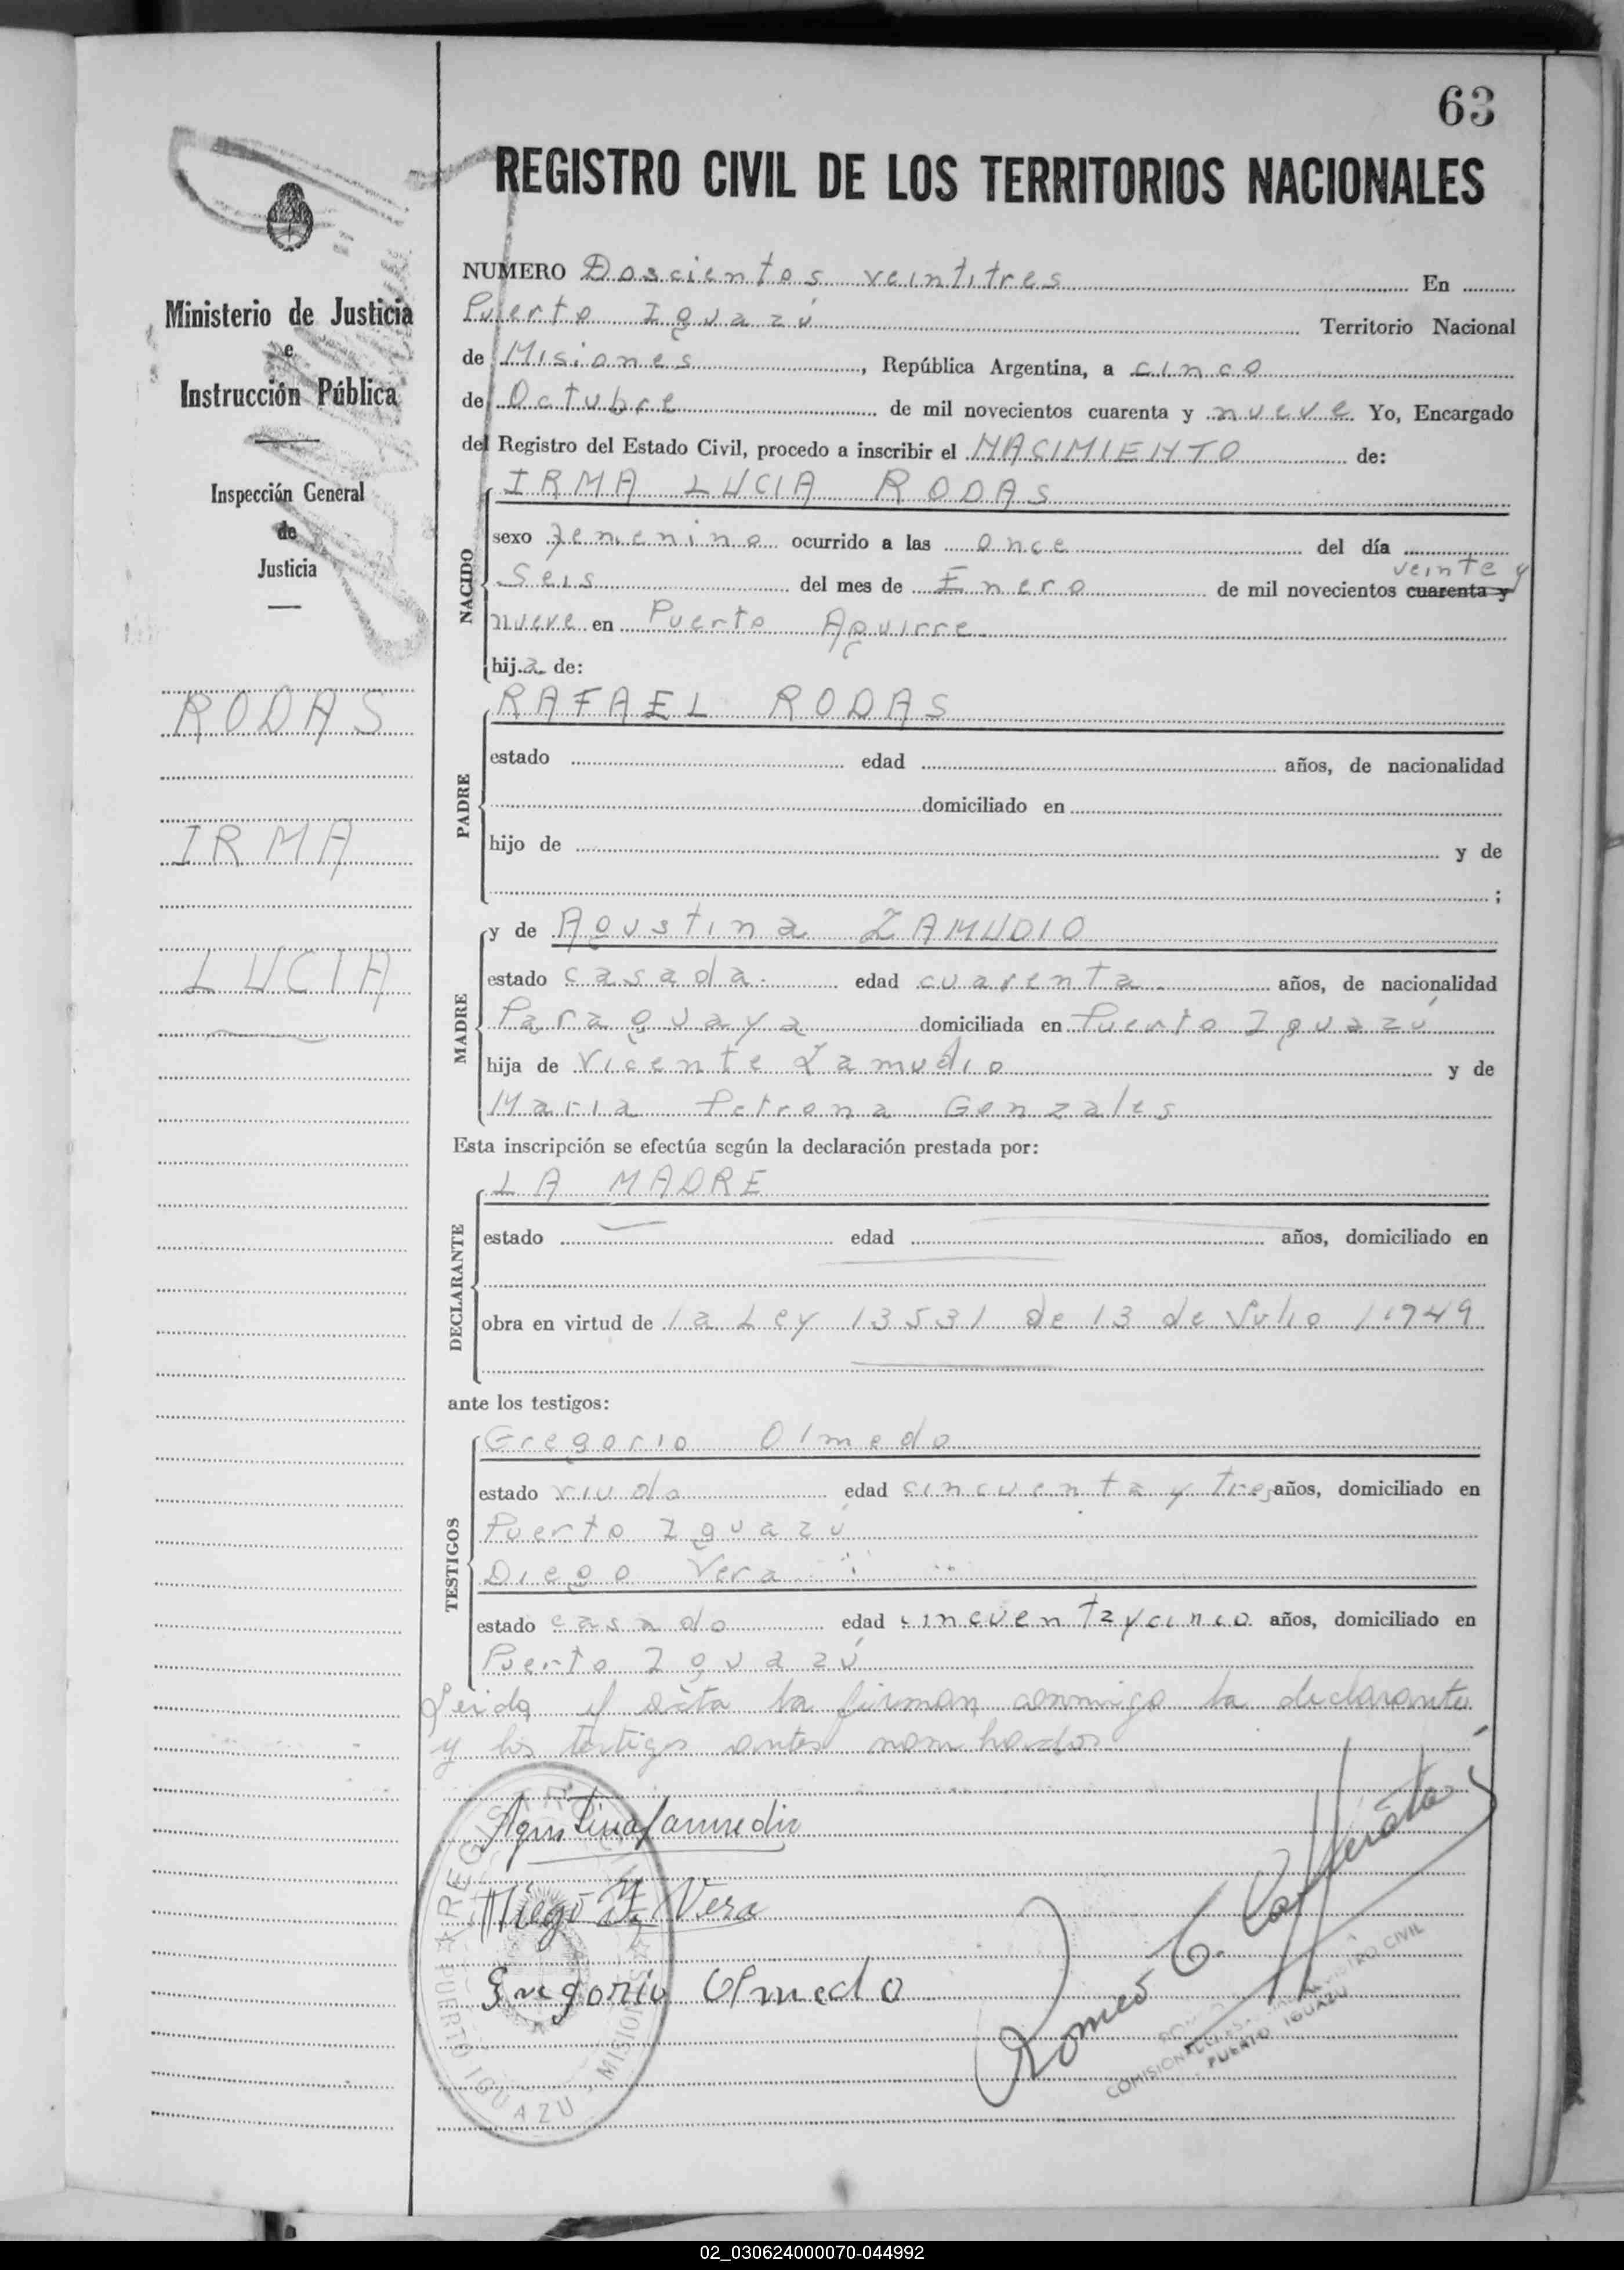 63
REGISTRO CIVIL DE LOS TERRITORIOS NACIONALES
Ministerio de Justicia
e
Instrucción Pública
Inspección General
de
Justicia
RODAS
IRMA
LUCIA
NUMERO Doscientos veintitres En
Puerto Iguazú Territorio Nacional
de Misiones, República Argentina, a cinco
de Octubre de mil novecientos cuarenta y nueve Yo, Encargado
del Registro del Estado Civil, procedo a inscribir el NACIMIENTO de:
NACIDO
IRMA LUCIA RODAS
sexo femenino ocurrido a las once del día
veinte y
Seis del mes de Enero de mil novecientos cuarenta y
nueve en Puerto Aguirre
hija de:
PADRE
RAFAEL RODAS
estado edad años, de nacionalidad
domiciliado en
hijo de y de
;
MADRE
y de Agustina ZAMUDIO
estado casada. edad cuarenta. años, de nacionalidad
Paraguaya domiciliada en Puerto Iguazú
hija de Vicente Zamudio y de
Maria Petrona Gonzales
Esta inscripción se efectúa según la declaración prestada por:
DECLARANTE
LA MADRE
estado edad años, domiciliado en
obra en virtud de la Ley 13531 de 13 de Julio 1949
ante los testigos:
TESTIGOS
Gregorio Olmedo
estado viudo edad cincuenta y tres años, domiciliado en
Puerto Iguazú
Diego Vera
estado casado edad cincuentaycinco años, domiciliado en
Puerto Iguazú
Leida el acta la firman conmigo la declarante
y los testigos antes nombrados
Agustina Zamudio
Diego Vera
Gregorio Olmedo
Romeo C.
REGISTRO CIVIL
PUERTO IGUAZU
PUERTO IGUAZU - MISIONES
02_030624000070-044992